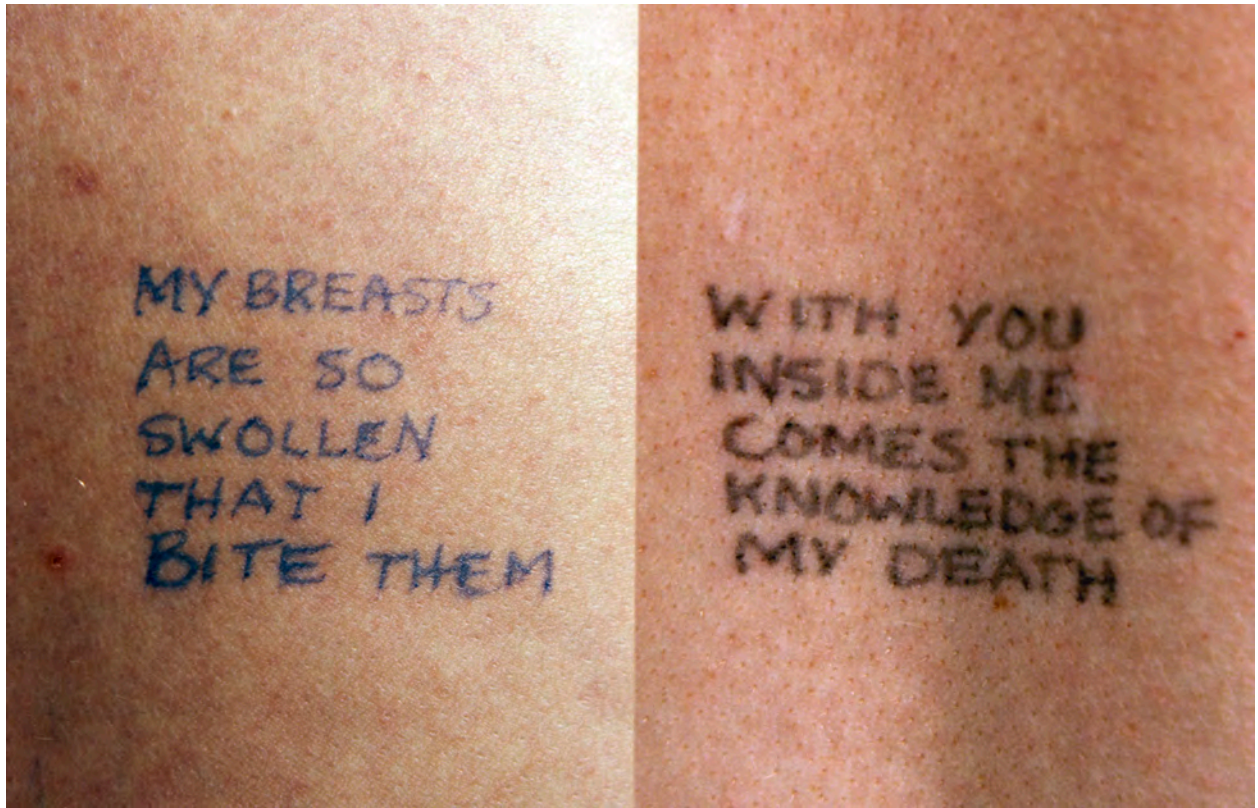 MY BREASTS
ARE SO
SWOLLEN
THAT I
BITE THEM
WITH YOU
INSIDE ME
COMES THE
KNOWLEDGE OF
MY DEATH